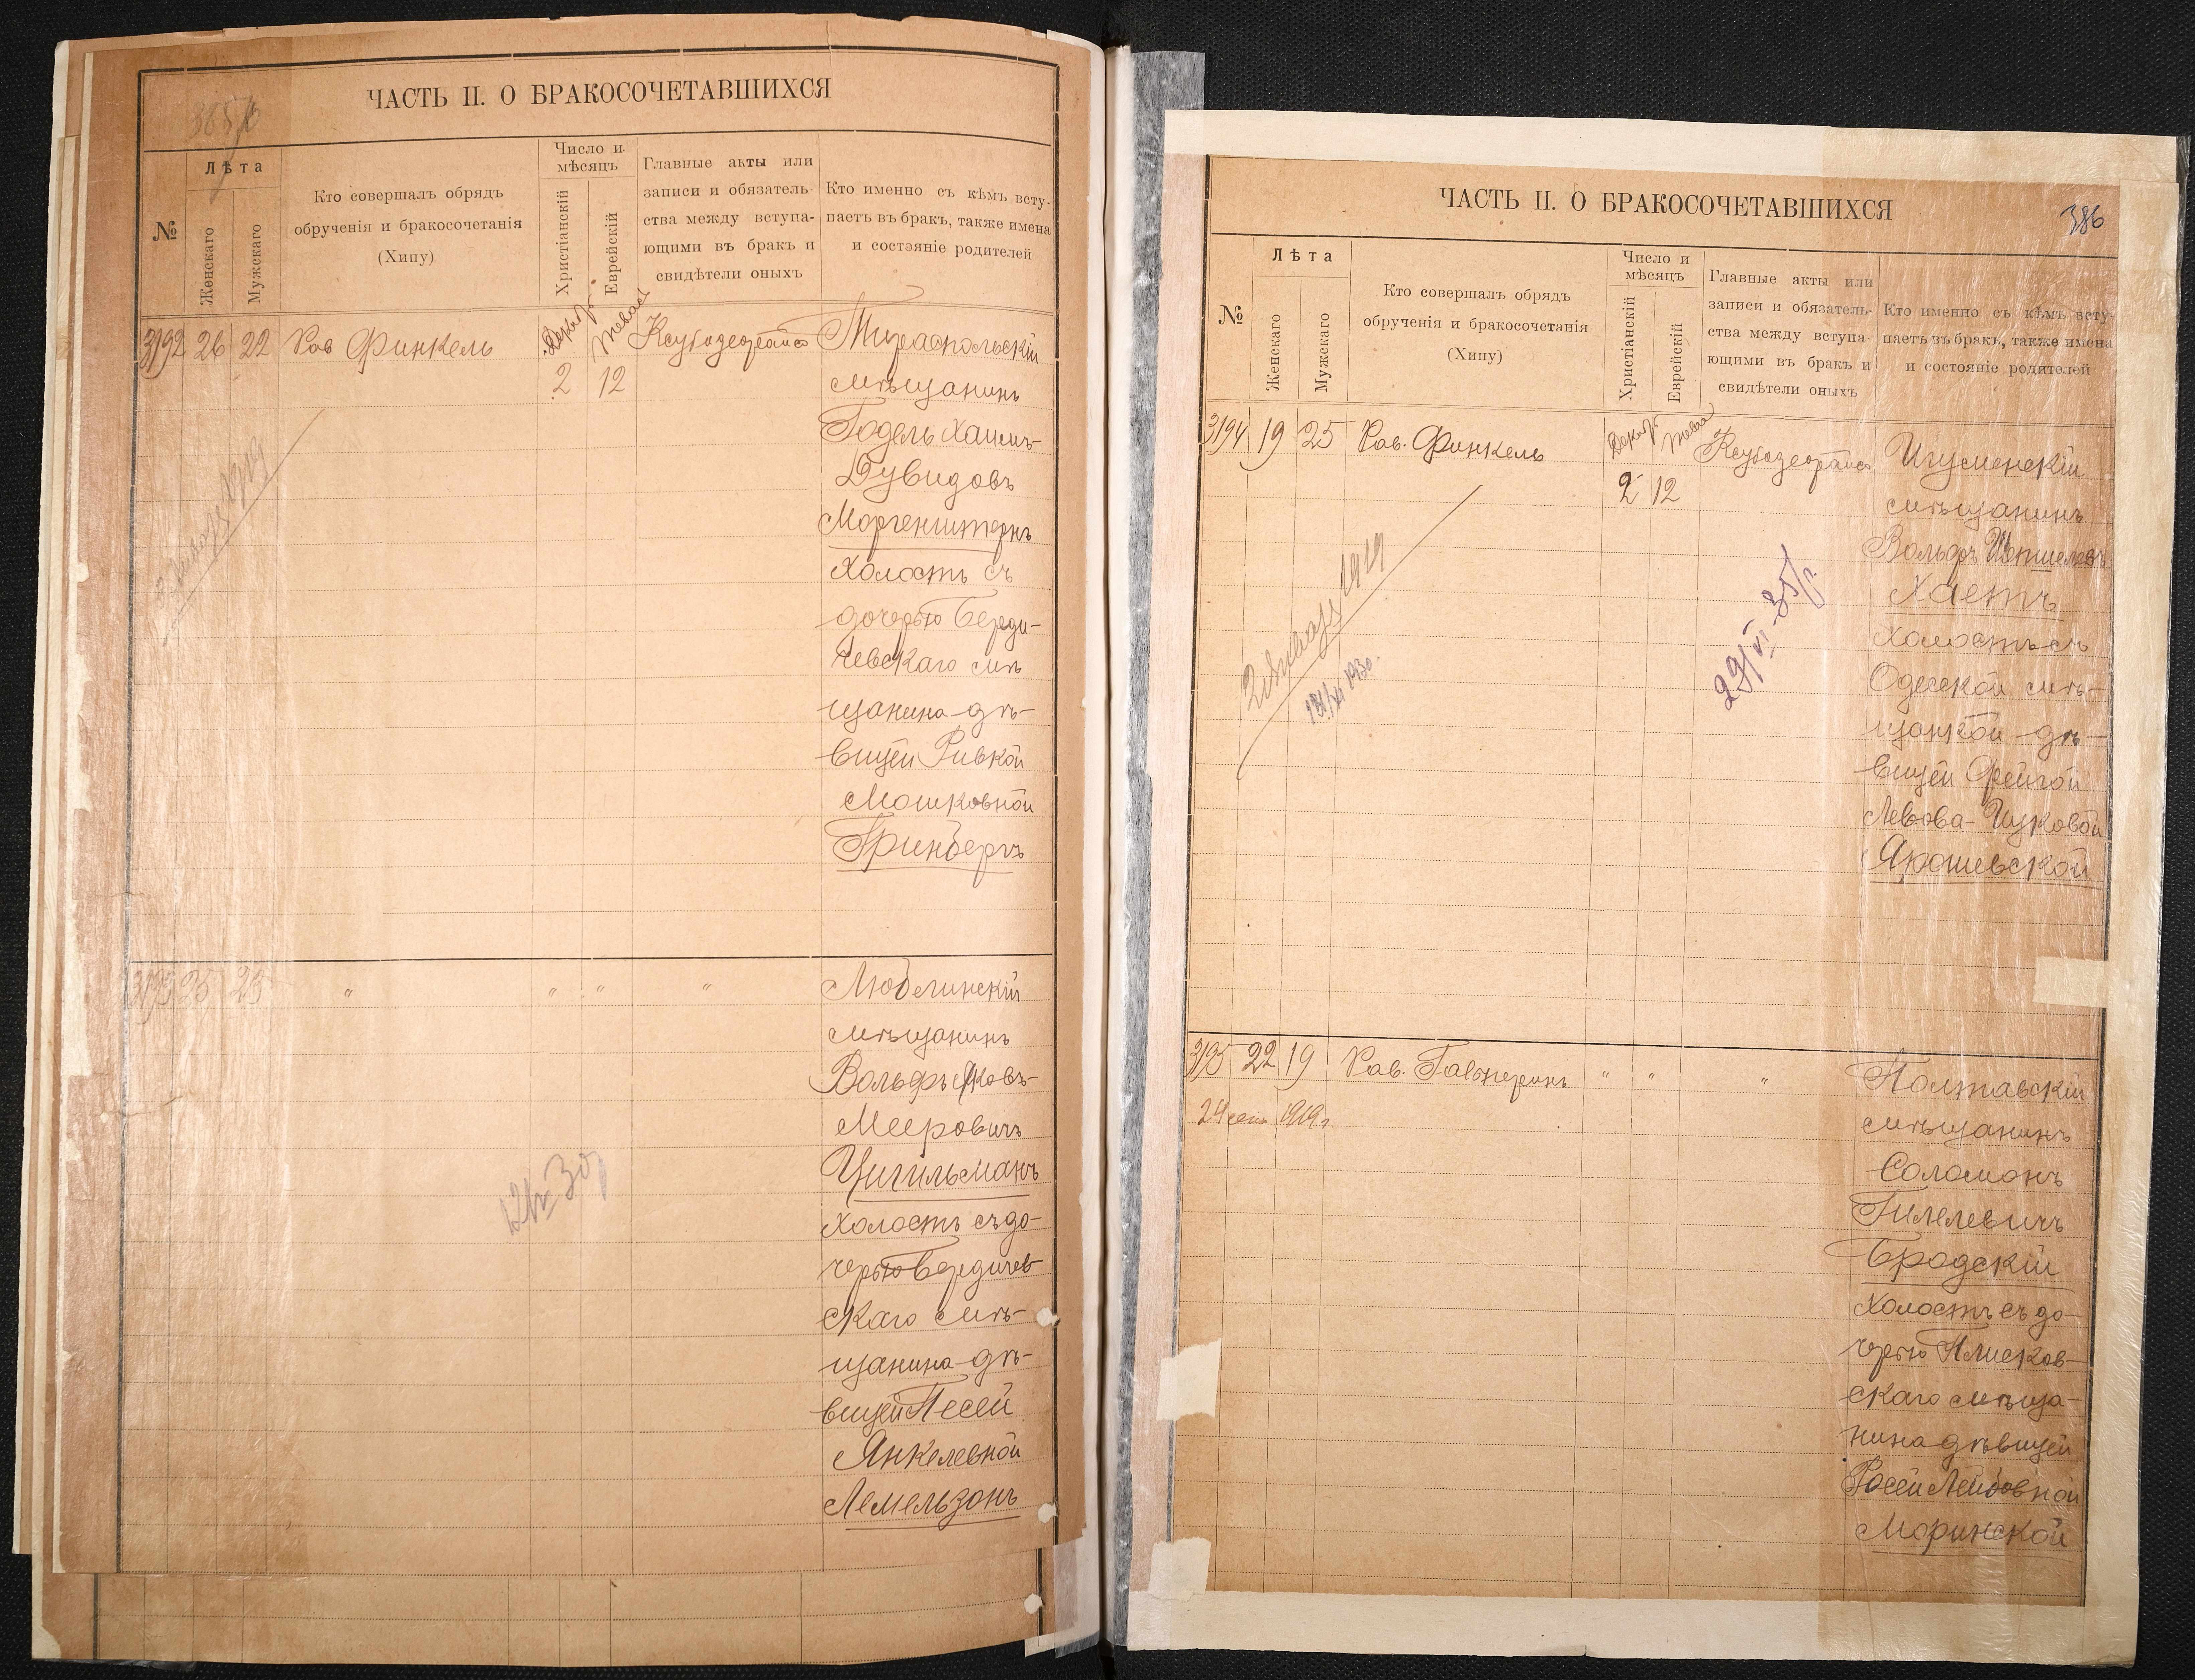 ЧАСТЬ II. О БРАКОСОЧЕТАВШИХСЯ
№
Лѣта
Женскаго
Мужскаго
Кто совершалъ обрядъ
обрученія и бракосочетанія
(Хипу)
Число и
мѣсяцъ
Христіанскій
Еврейскій
Главные акты или
записи и обязатель-
ства между вступа-
ющими въ бракъ и
свидѣтели оныхъ
Кто именно съ кѣмъ всту-
паетъ въ бракъ, также имена
и состояніе родителей
3192 26 22 Рав Финкель
2 12
Тираспольскій
мѣщанинъ
Годель Хаимъ-
Дувидовъ
Моргенштернъ
холостъ съ
дочерью Берди-
чевскаго мѣ
щанина дѣ-
вицей Ривкой
Мошковной
Гринбергъ
3193 25 25 " " " "
Люблинскій
мѣщанинъ
Вольфъ Яковъ-
Мееровичъ
Цигильманъ
холостъ съ до-
черью Бердичев-
скаго мѣ-
щанина дѣ-
вицей Песей
Янкелевной
Лемельзонъ
ЧАСТЬ II. О БРАКОСОЧЕТАВШИХСЯ
386
№
Лѣта
Женскаго
Мужскаго
Кто совершалъ обрядъ
обрученія и бракосочетанія
(Хипу)
Число и
мѣсяцъ
Христіанскій
Еврейскій
Главные акты или
записи и обязатель-
ства между вступа-
ющими въ бракъ и
свидѣтели оныхъ
Кто именно съ кѣмъ всту-
паетъ въ бракъ, также имена
и состояніе родителей
3194 19 25 Рав. Финкель
2 12
29/VI-35 г.
Игуменскій
мѣщанинъ
Вольфъ
Хаетъ
холостъ съ
Одесской мѣ-
щанкой дѣ-
вицей Фейгой
Ярошевской
3195 22 19 Рав. " " "
1919 г
Полтавскій
мѣщанинъ
Соломонъ
Гилелевичъ
Бродскій
холостъ съ до-
черью Плисков-
скаго мѣща-
нина дѣвицей
Росей Лейбовной
Моринской